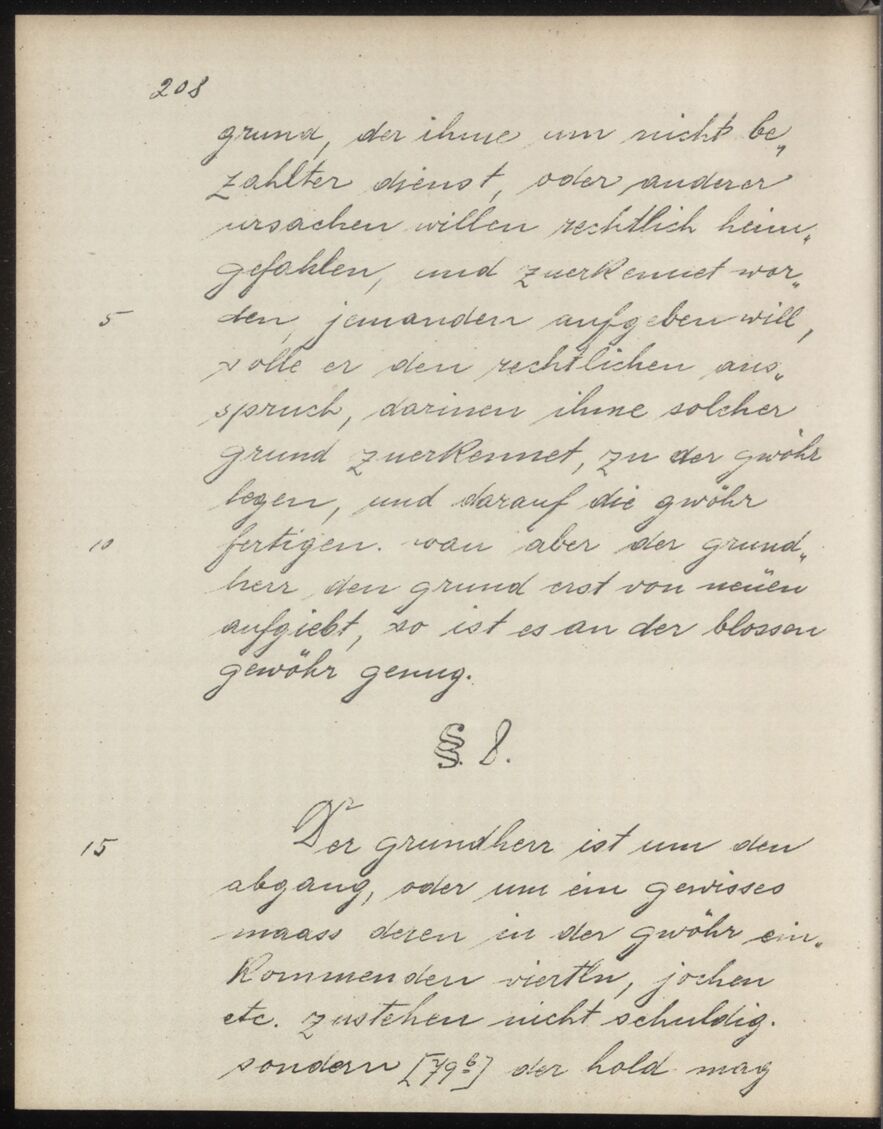 208
grund, der ihme um nicht be„
zahlter dienst, oder anderer
ursachen willen rechtlich heim„
gefahlen, und zuerkennet wor„
5 den, jemanden aufgeben will,
solle er den rechtlichen aus„
spruch, darinen ihme solcher
grund zuerkennet, zu der gwöhr
legen, und darauf die gwöhr
10 fertigen. wan aber der grund„
herr den grund erst von neüen
aufgiebt, so ist es an der blossen
gewöhr genug.
§. 8.
15 Der grundherr ist um den
abgang, oder um ein gewisses
maass deren in der gwöhr ein„
kommenden viertln, jochen
etc. zustehen nicht schuldig.
sondern [79b] der hold mag